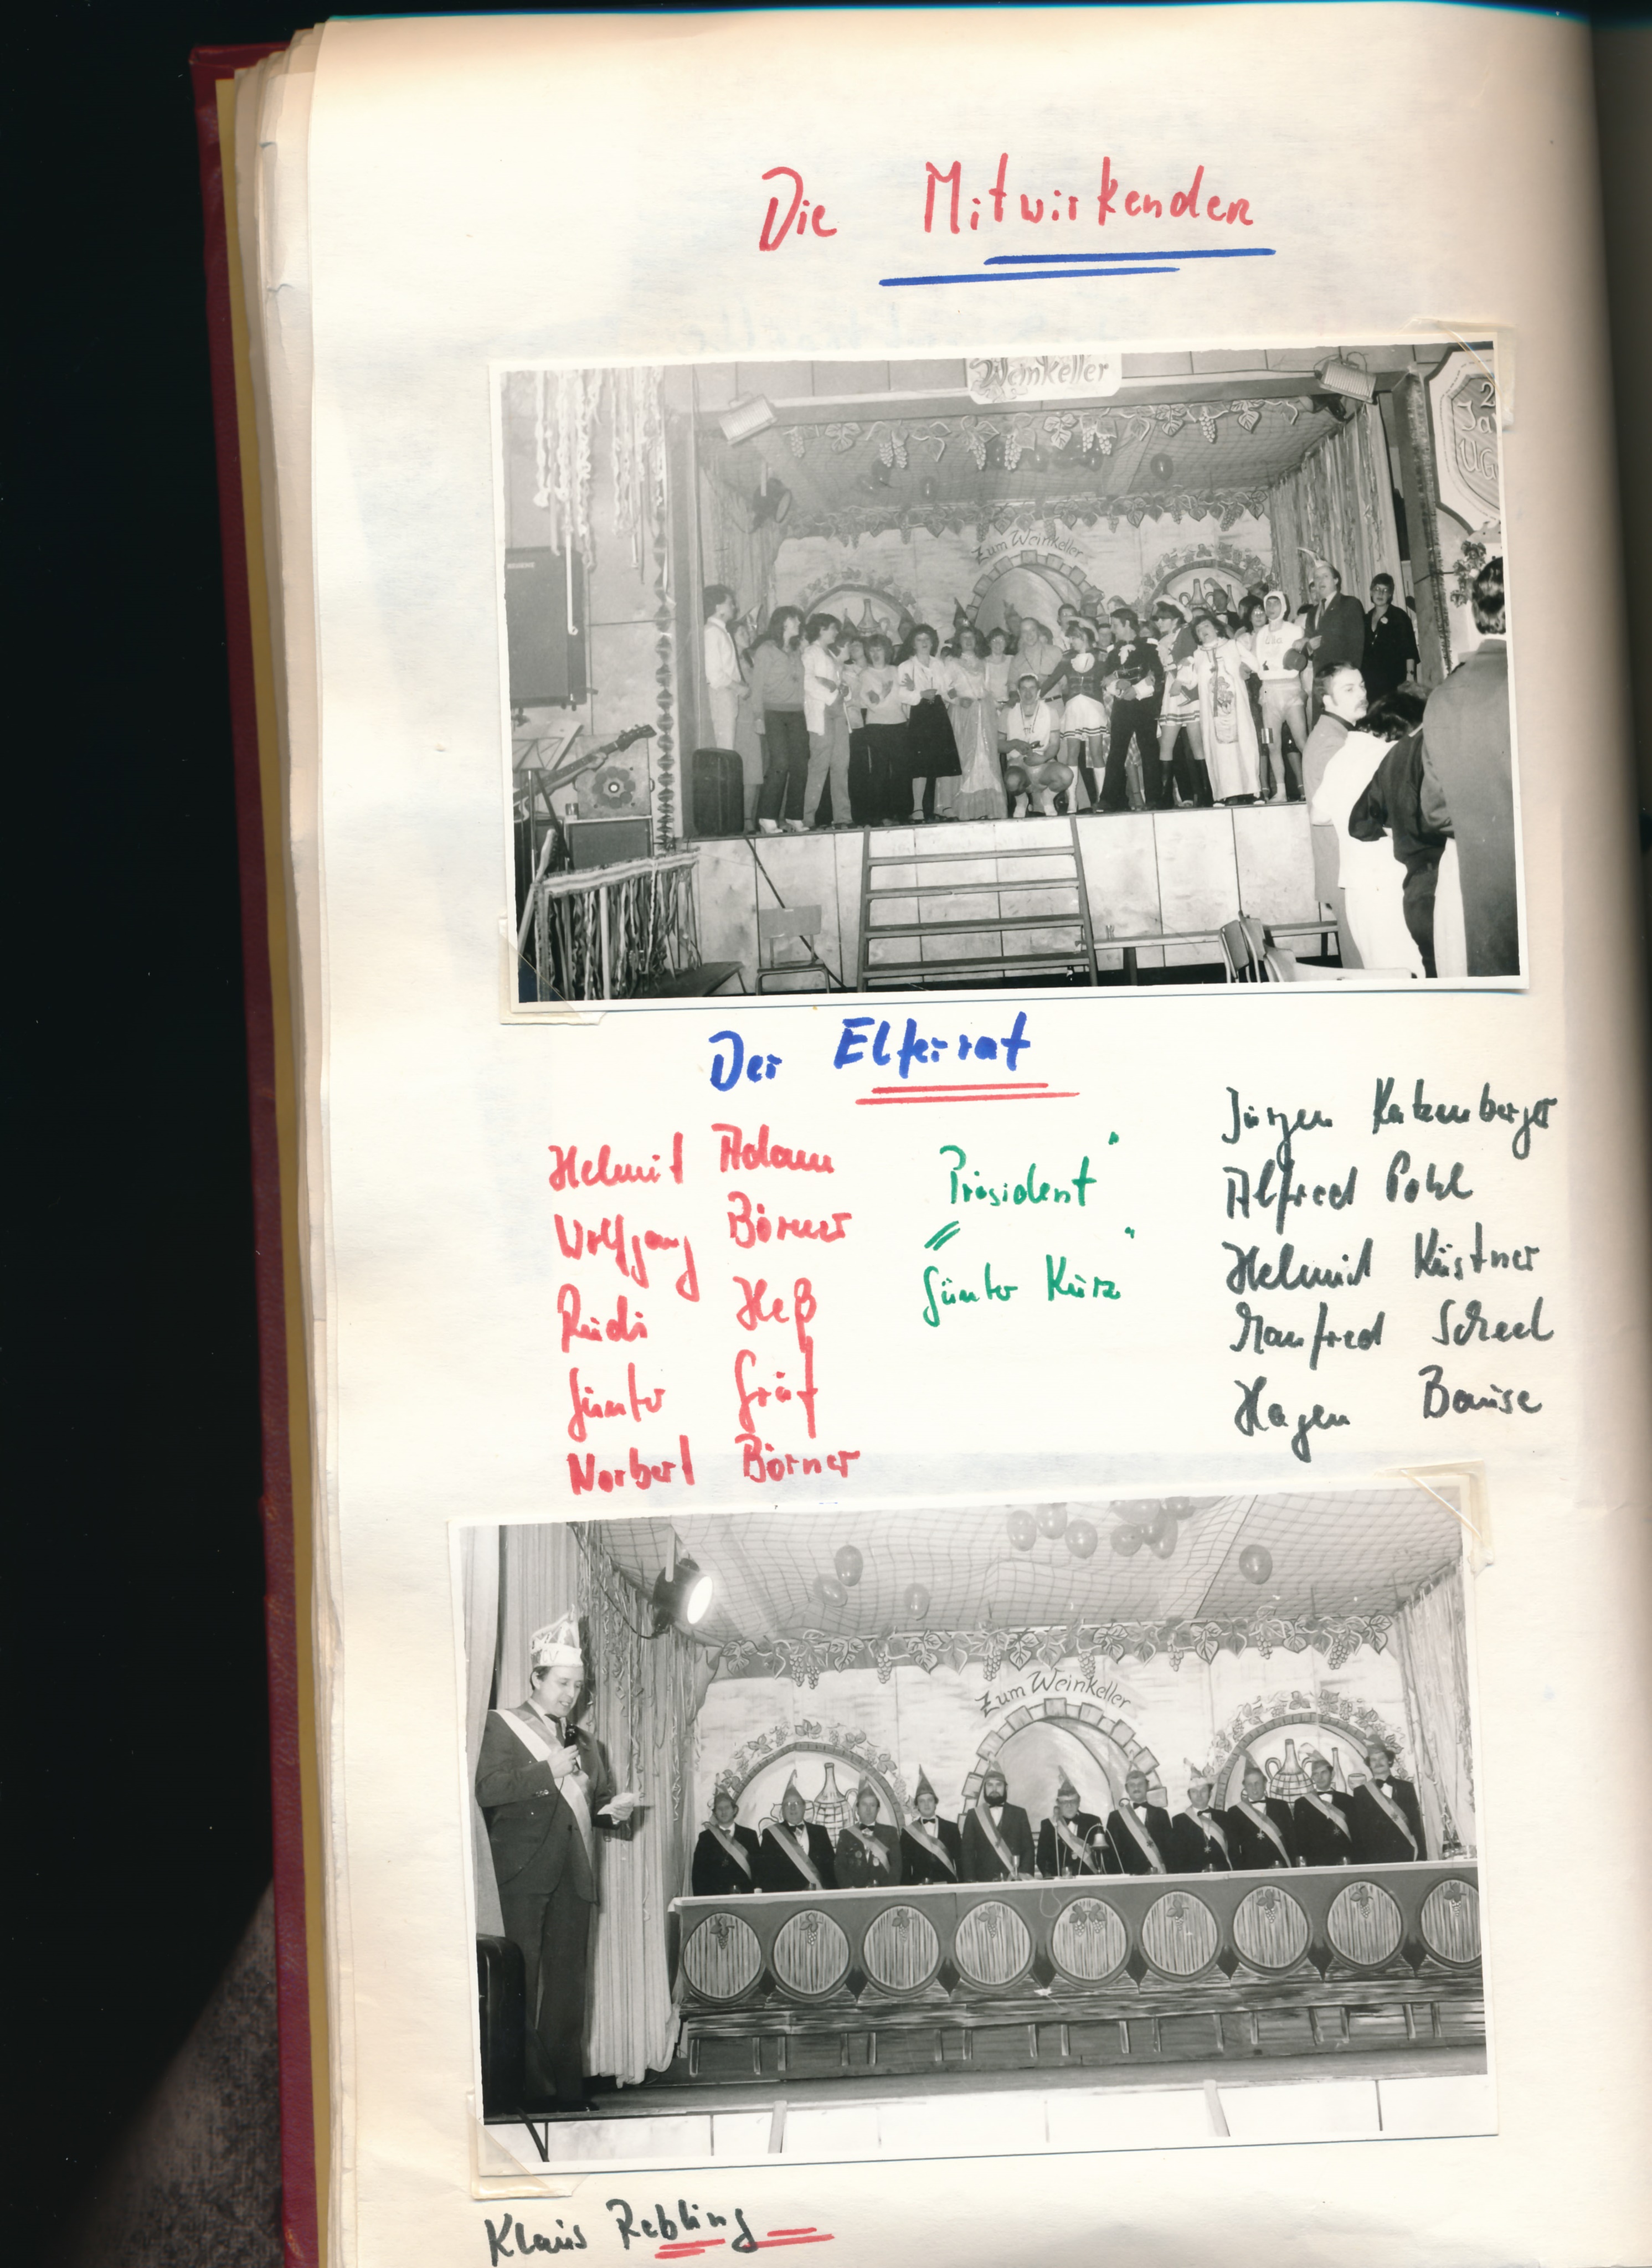 Die Mitwirkenden
Weinkeller
Zum Weinkeller
Der Elferrat
Helmut Adam
Wolfgang Börner
Rudi Heß
Günter Gräf
Norbert Börner
Präsident
Günter Kürz
Jürgen Katzenberger
Alfred Pohl
Helmut Küstner
Manfred Scheel
Hagen Bause
Zum Weinkeller
Klaus Rebling